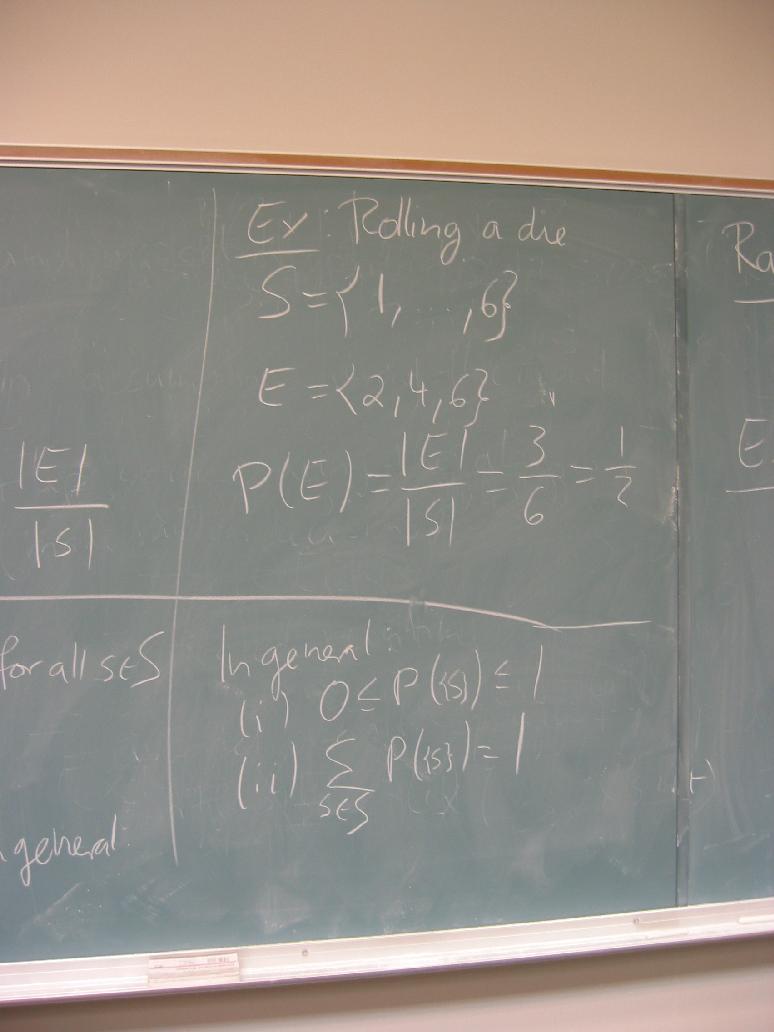 |E|
|S|
for all s∈S
n general:
Ex: Rolling a die
S = {1, ..., 6}
E = {2, 4, 6}
P(E) = |E| / |S| = 3/6 = 1/2
In general:
(i) 0 ≤ P({s}) ≤ 1
(ii) ∑ P({s}) = 1
s∈S
Ra
E